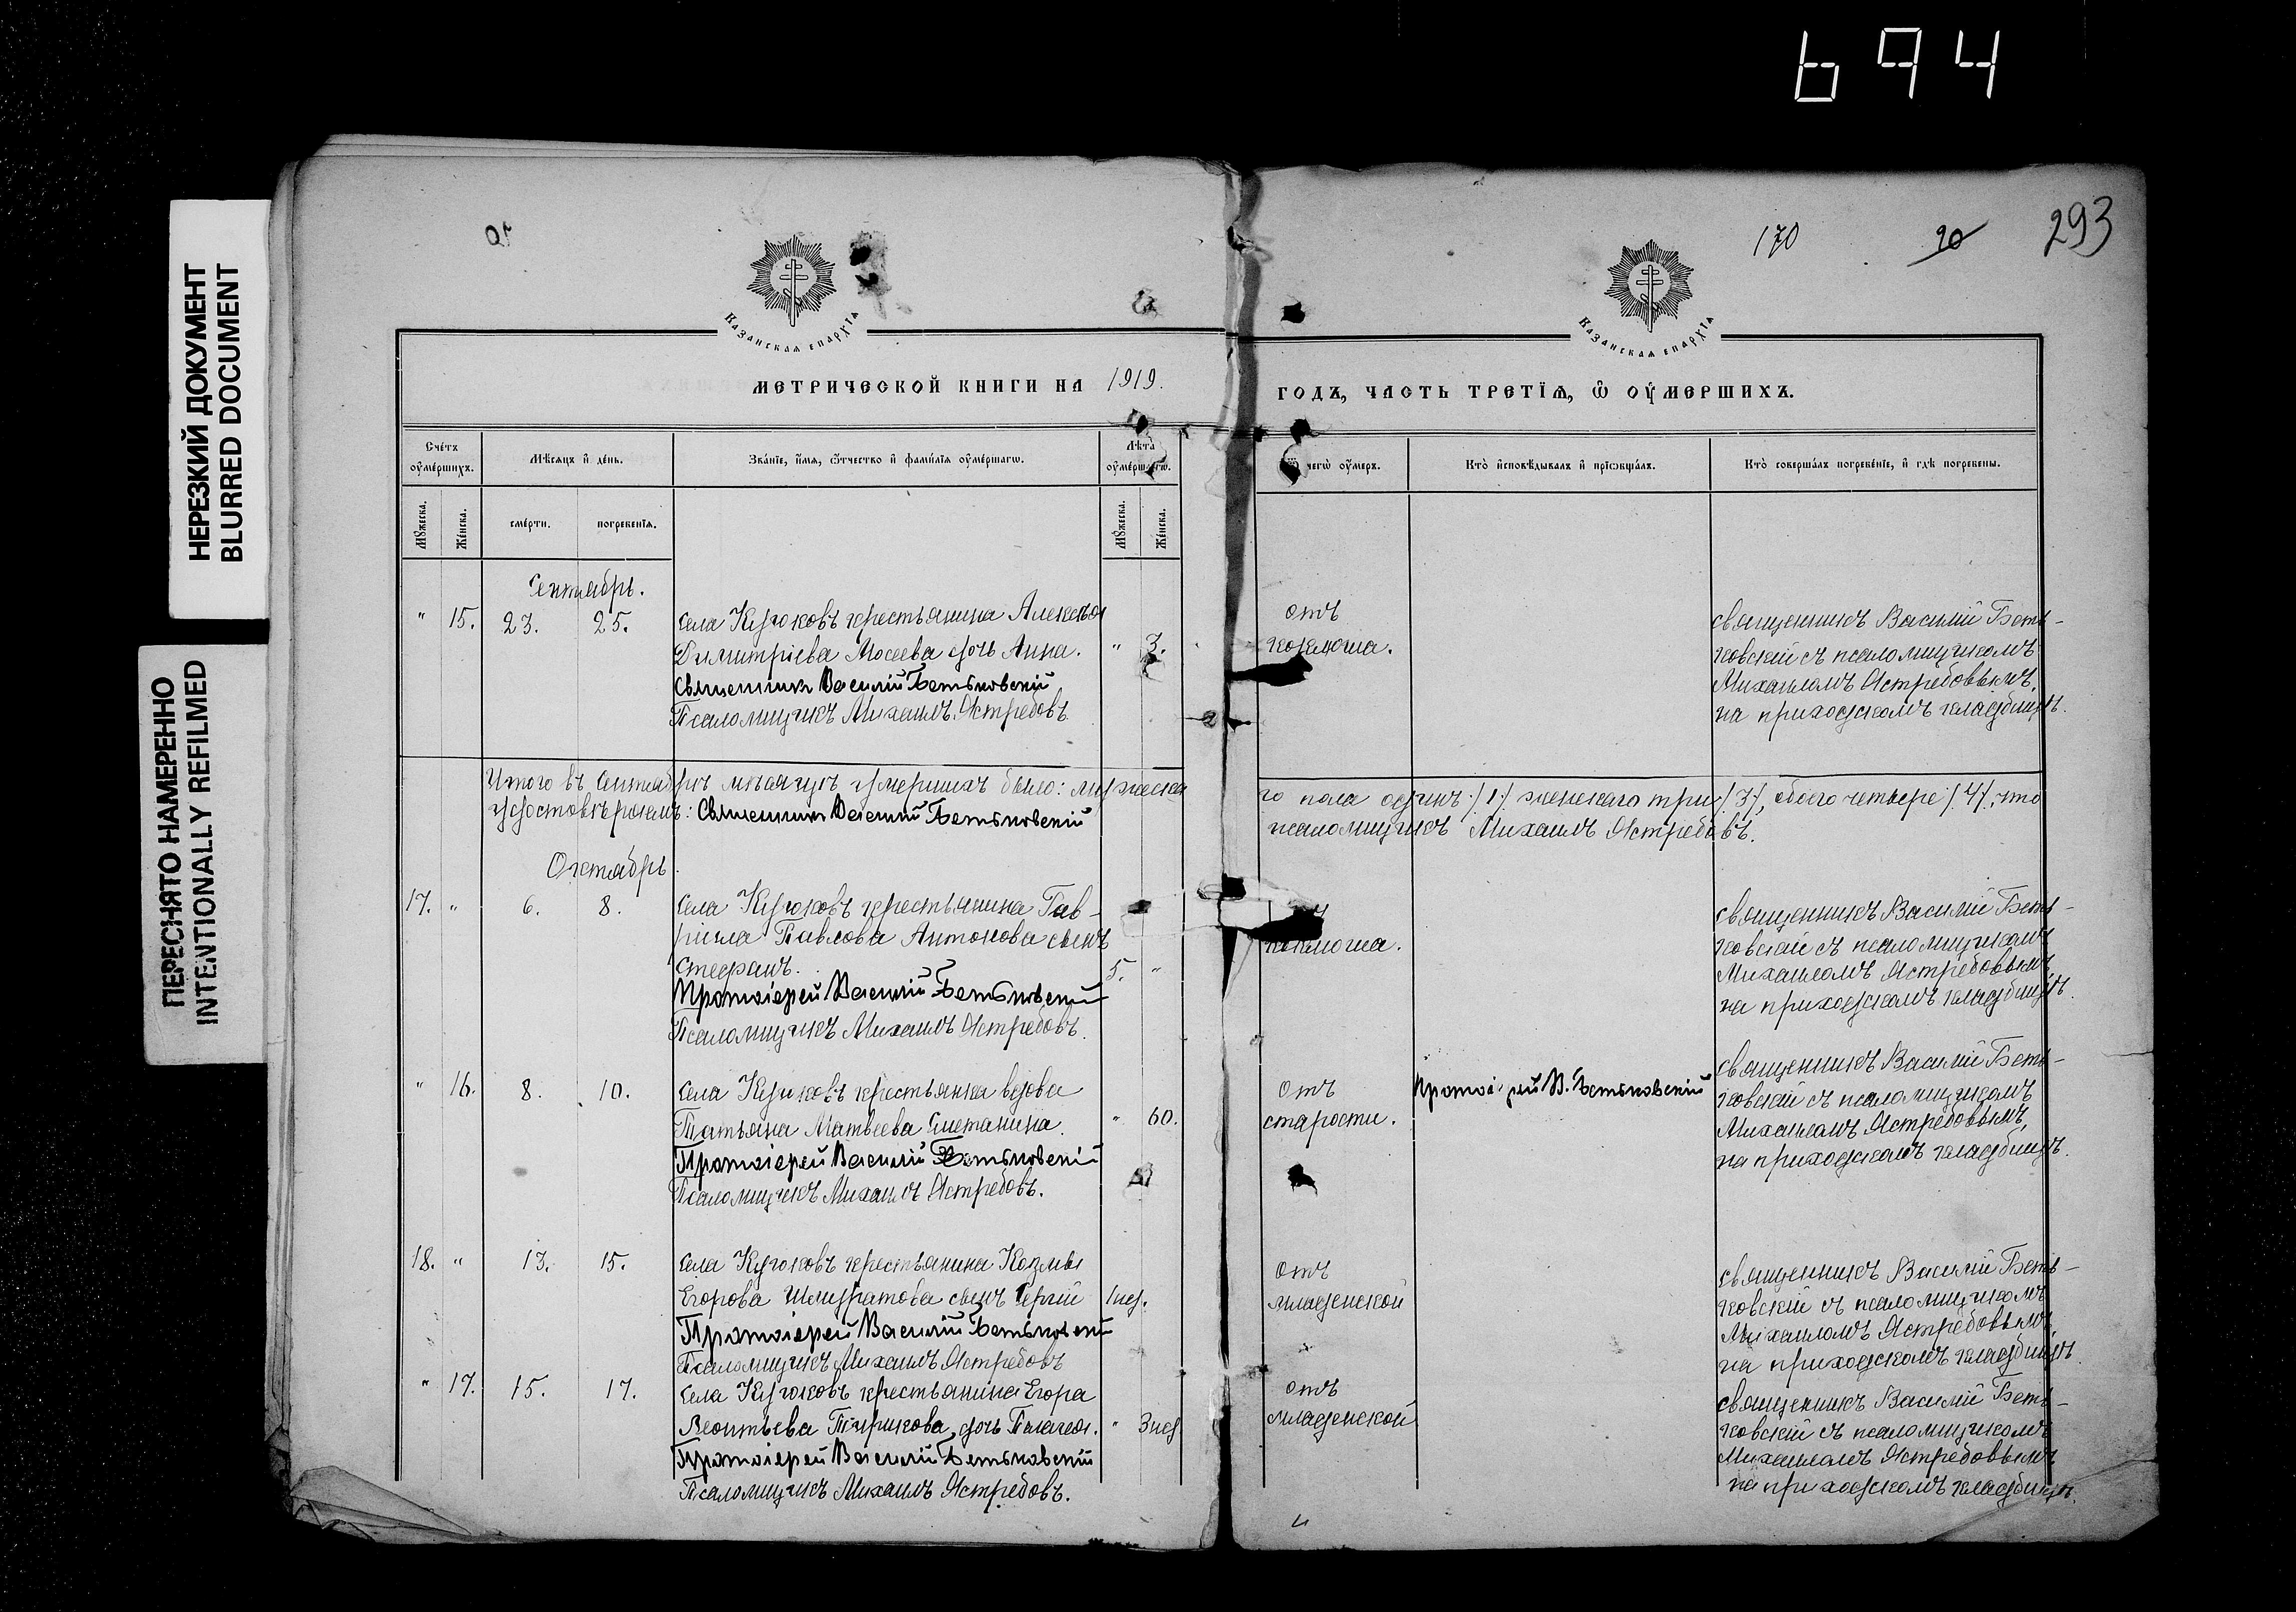 694
НЕРЕЗКИЙ ДОКУМЕНТ
BLURRED DOCUMENT
ПЕРЕСНЯТО НАМЕРЕННО
INTENTIONALLY REFILMED
170 20 293
Казанская епархїѧ
Казанская епархїѧ
МЕТРИЧЕСКОЙ КНИГИ НА 1919. ГОДЪ, ЧАСТЬ ТРЕТЇѦ, Ѡ ОУМЕРШИХЪ.
Счетъ оумершихъ.
Мѣсѧцъ и день.
Званїе, имѧ, ѿчество и фамилїѧ оумершагѡ.
Лѣта оумершагѡ.
Ѿ чегѡ оумеръ.
Кто исповѣдывалъ и прїѡбщалъ.
Кто совершалъ погребенїе, и гдѣ погребены.
Мꙋжеска.
Женска.
смерти.
погребенїѧ.
Мꙋжеска.
Женска.
Сентябрь.
" 15. 23. 25. Села Кудюковъ крестьянина Алексѣя
Димитріева Мосеева дочь Анна. " 3.
Священникъ Василій Бетьковскій
Псаломщикъ Михаилъ Ястребовъ
отъ
коклюша.
священникъ Василій Беть-
ковскій съ псаломщикомъ
Михаиломъ Ястребовымъ,
на приходскомъ кладбищѣ.
Итого въ Сентябрѣ мѣсяцѣ умершихъ было: мужеска
го пола одинъ /1/ женскаго три /3/, обоего четверо /4/, что
удостовѣряемъ: Священникъ Василій Бетьковскій
псаломщикъ Михаилъ Ястребовъ.
Октябрь.
17. " 6. 8. Села Кудюковъ крестьянина Гав-
ріила Павлова Антонова сынъ
Стефанъ. 5. "
Протоіерей Василій Бетьковскій
Псаломщикъ Михаилъ Ястребовъ.
коклюша.
священникъ Василій Беть-
ковскій съ псаломщикомъ
Михаиломъ Ястребовымъ,
на приходскомъ кладбищѣ.
" 16. 8. 10. Села Кудюковъ крестьянка вдова
Татьяна Матвеева Сметанина. " 60.
Протоіерей Василій Бетьковскій
Псаломщикъ Михаилъ Ястребовъ.
отъ
старости.
Протоіерей В. Бетьковскій
священникъ Василій Беть-
ковскій съ псаломщикомъ
Михаиломъ Ястребовымъ,
на приходскомъ кладбищѣ.
18. " 13. 15. Села Кудюковъ крестьянина Козмы
Егорова сынъ Сергій 1 нед.
Протоіерей Василій Бетьковскій
Псаломщикъ Михаилъ Ястребовъ
отъ
младенской
священникъ Василій Беть-
ковскій съ псаломщикомъ
Михаиломъ Ястребовымъ,
на приходскомъ кладбищѣ.
" 17. 15. 17. Села Кудюковъ крестьянина Егора
Леонтьева дочь Пелагея. " 3 нед
Протоіерей Василій Бетьковскій
Псаломщикъ Михаилъ Ястребовъ.
отъ
младенской
священникъ Василій Беть-
ковскій съ псаломщикомъ
Михаиломъ Ястребовымъ
на приходскомъ кладбищѣ.